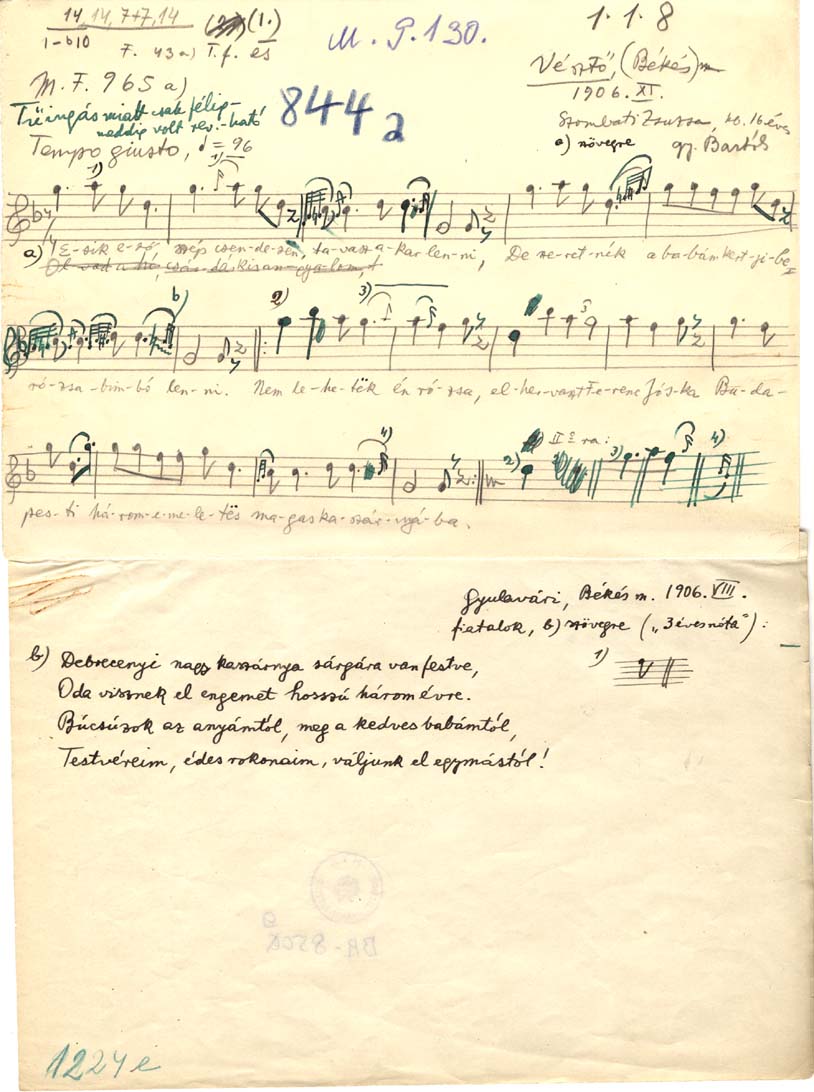 14, 14, 7+7, 14 (1.)
1-b10
F. 43 a) I. f. és
M. F. 965 a)
M. G. 130.
1. 1. 8
Vésztő, (Békés) m.
1906. XI.
844 a
Szombati Zsuzsa, 16 éves
a) szövegre gy. Bartók
miatt csak félig-
meddig volt rev.-ható
Tempo giusto, ♩ = 96
1) 1)
a) E-sik e-ső, szép csen-de-sen, ta-vasz a-kar len-ni, De sze-ret-nék a ba-bám kert-ji-be,
b) 2) 3)
ró-zsa-bim-bó len-ni. Nem le-he-tëk én ró-zsa, el-her-vaszt Fe-renc Jós-ka Bu-da-
4) II ra: 2) 3) 4)
pes-ti há-rom-e-me-le-tës ma-gas ka-szár-nyá-ba.
Gyulavári, Békés m. 1906. VIII.
fiatalok, b) szövegre („3 éves nóta"):
1)
b) Debrecenyi nagy kaszárnya sárgára van festve,
Oda visznek el engemet hosszú három évre.
Búcsúzok az anyámtól, meg a kedves babámtól,
Testvéreim, édes rokonaim, váljunk el egymástól!
1224 e